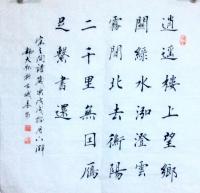 逍遥樓上望鄉
關綠水泓澄雲
霧間北去衡陽
二千里無因雁
足繫書還
宋之問詩